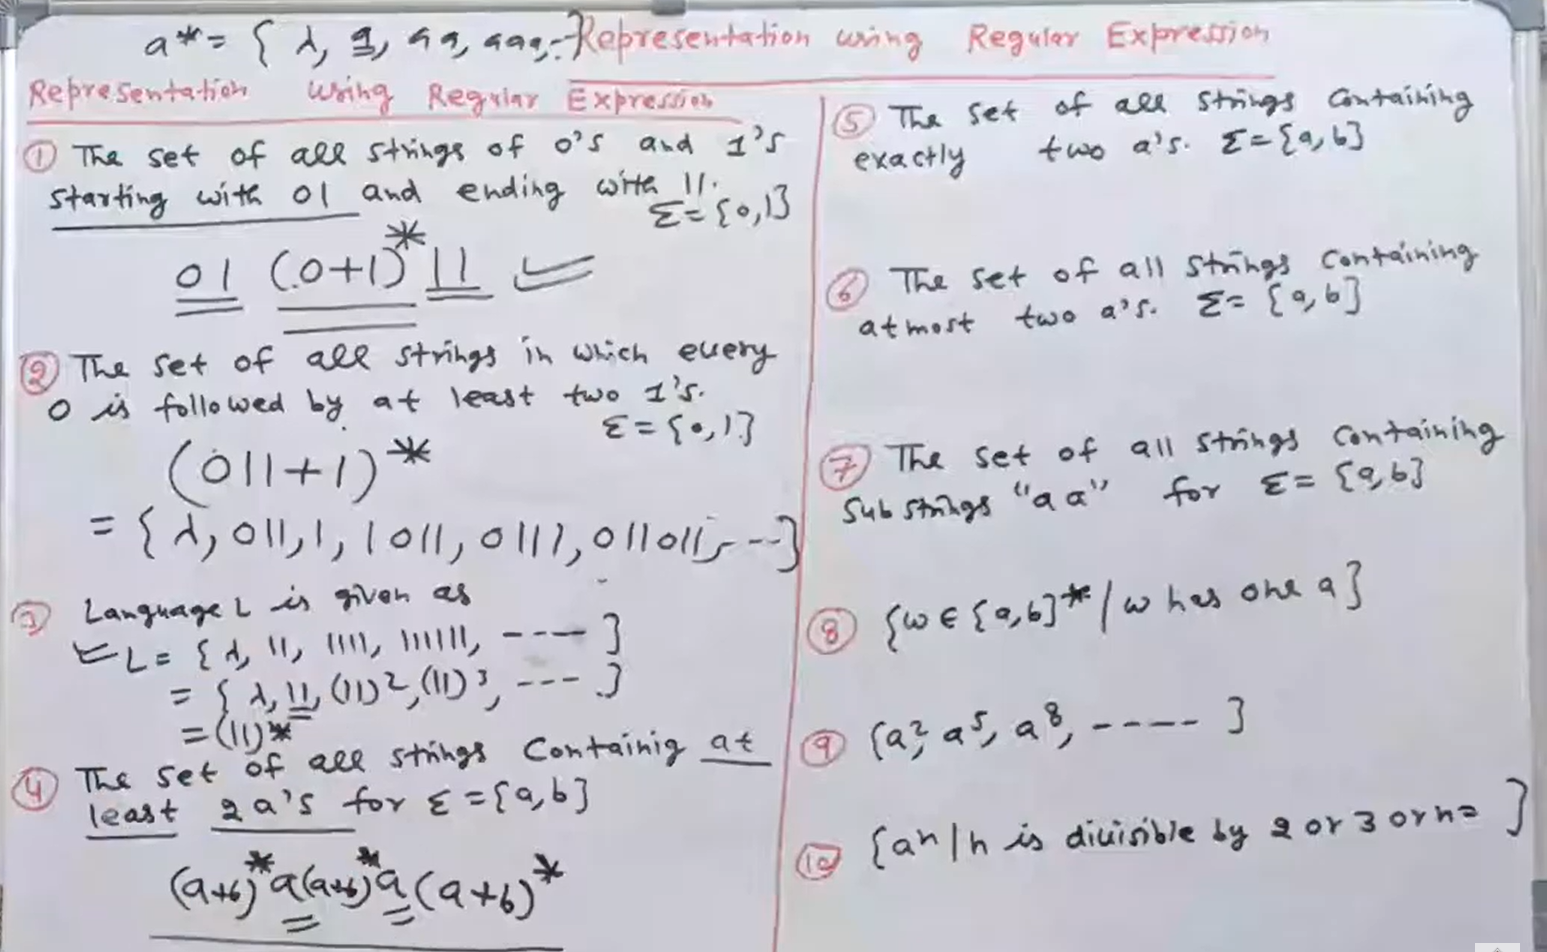 a* = { λ, a, aa, aaa, --}
Representation using Regular Expression
Representation using Regular Expression
① The set of all strings of 0's and 1's
starting with 01 and ending with 11.
Σ = {0,1}
01 (0+1)* 11
② The set of all strings in which every
0 is followed by at least two 1's.
Σ = {0,1}
(011+1)*
= { λ, 011, 1, 1011, 0111, 011011, ---}
③ Language L is given as
L = { λ, 11, 1111, 111111, ---- }
= { λ, 11, (11)², (11)³, --- }
= (11)*
④ The set of all strings Containig at
least 2 a's for Σ = {a, b}
(a+b)* a (a+b)* a (a+b)*
⑤ The set of all strings Containing
exactly two a's. Σ = {a, b}
⑥ The set of all strings Containing
atmost two a's. Σ = {a, b}
⑦ The set of all strings Containing
Sub strings "aa" for Σ = {a, b}
⑧ {w ∈ {a, b}* / w has one a}
⑨ {a², a⁵, a⁸, ---- }
⑩ {an | n is divisible by 2 or 3 or n= }